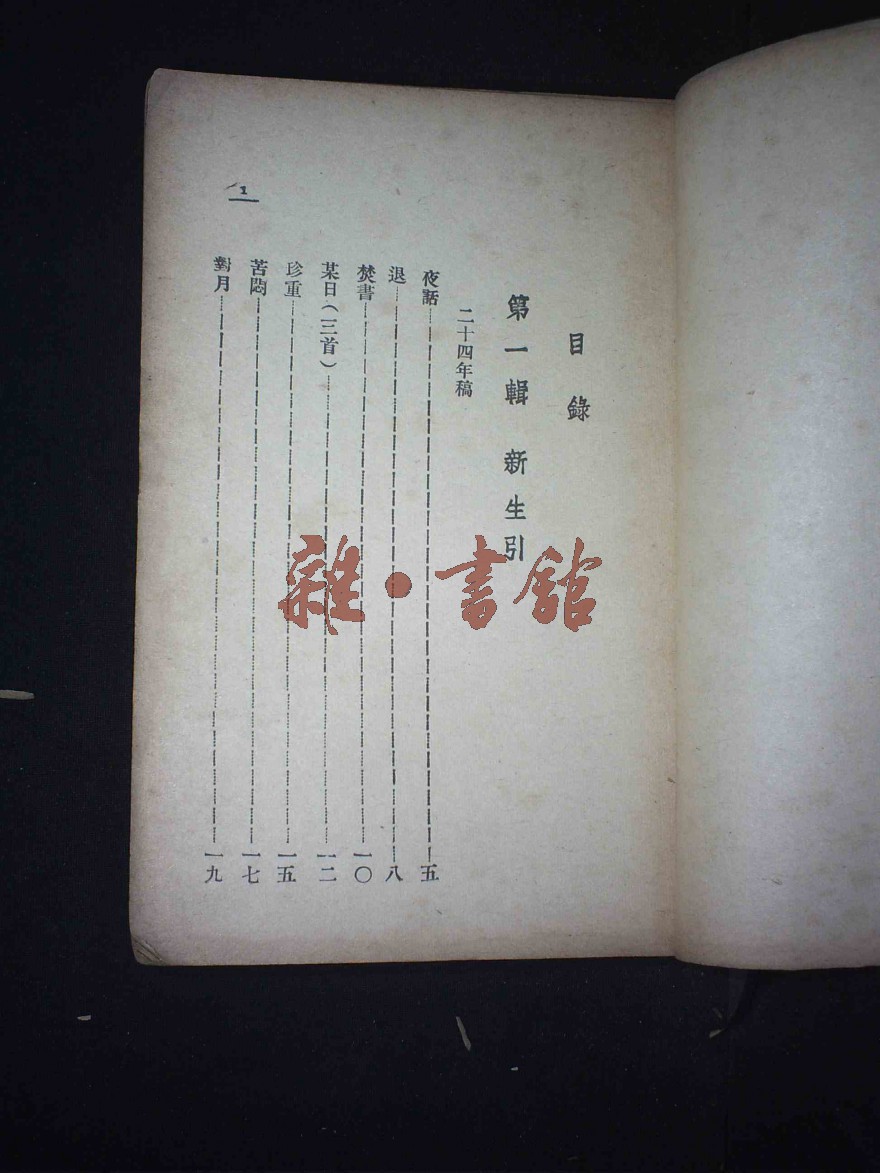 目錄
第一輯 新生引
二十四年稿
夜話 五
退 八
焚書 一〇
某日(三首) 一二
珍重 一五
苦悶 一七
對月 一九
1
雜·書館